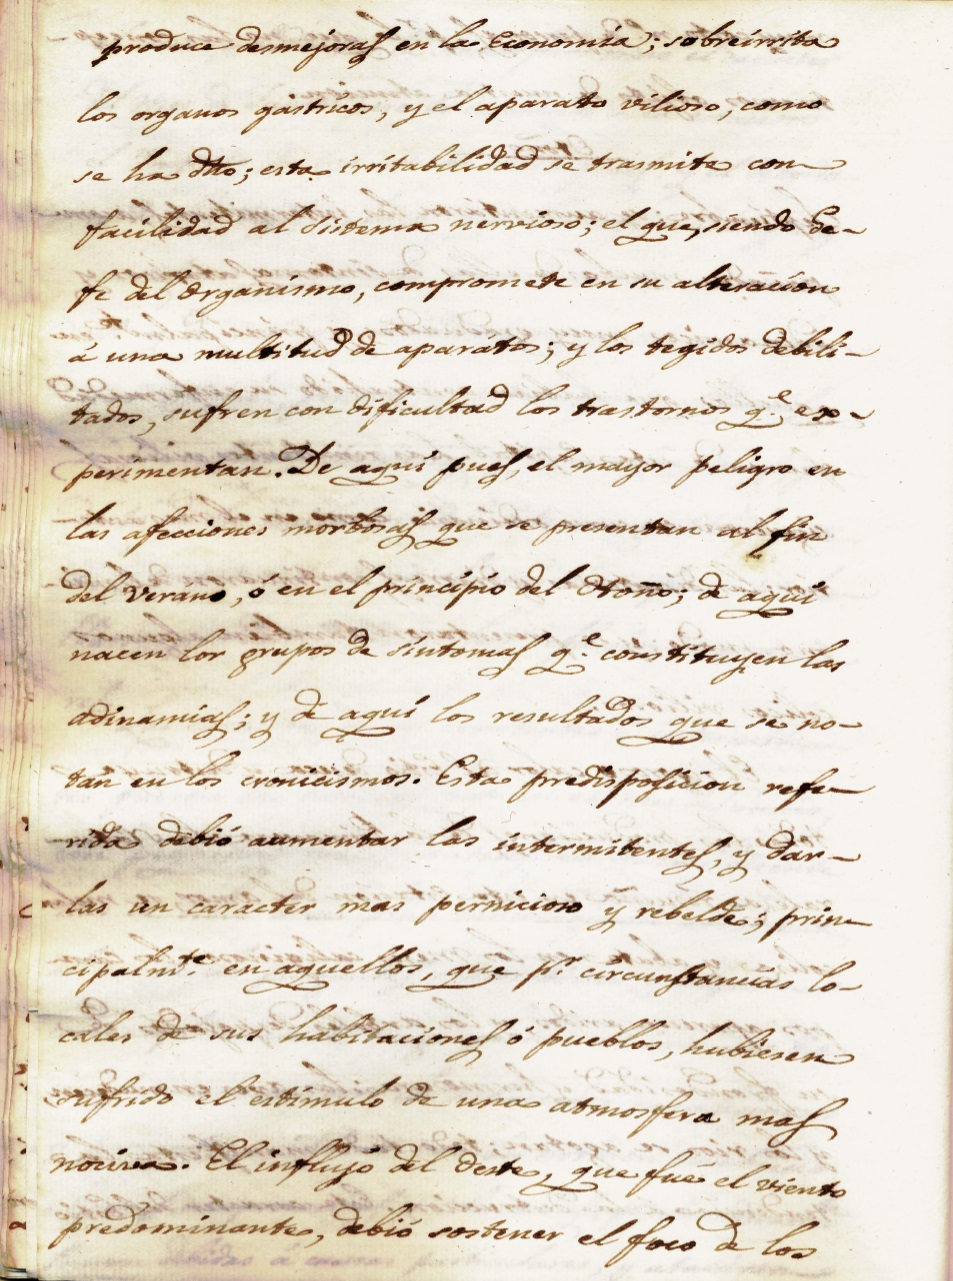 produce desmejoras en la Economía; sobreirrita
los organos gástricos, y el aparato vilioso, como
se ha dho; esta irritabilidad se trasmite con
facilidad al sistema nervioso; el que, siendo Ge-
fe del Organismo, compromete en su alteración
á una multitud de aparatos; y los tegidos debili-
tados, sufren con dificultad los trastornos q.e ex-
perimentan. De aquí pues, el mayor peligro en
las afecciones morbosas que se presentan al fin
del verano, ó en el principio del Otoño; de aquí
nacen los grupos de síntomas q.e constituyen las
adinamias; y de aquí los resultados que se no-
tan en los cronicismos. Esta predisposicion refe-
rida debió aumentar las intermitentes, y dar-
las un caracter mas pernicioso y rebelde; prin-
cipalm.te en aquellos, que p.r circunstancias lo-
cales de sus habitaciones ó pueblos, hubiesen
sufrido el estimulo de una atmosfera mas
nociva. El influjo del Oeste, que fué el viento
predominante, debió sostener el foco de los